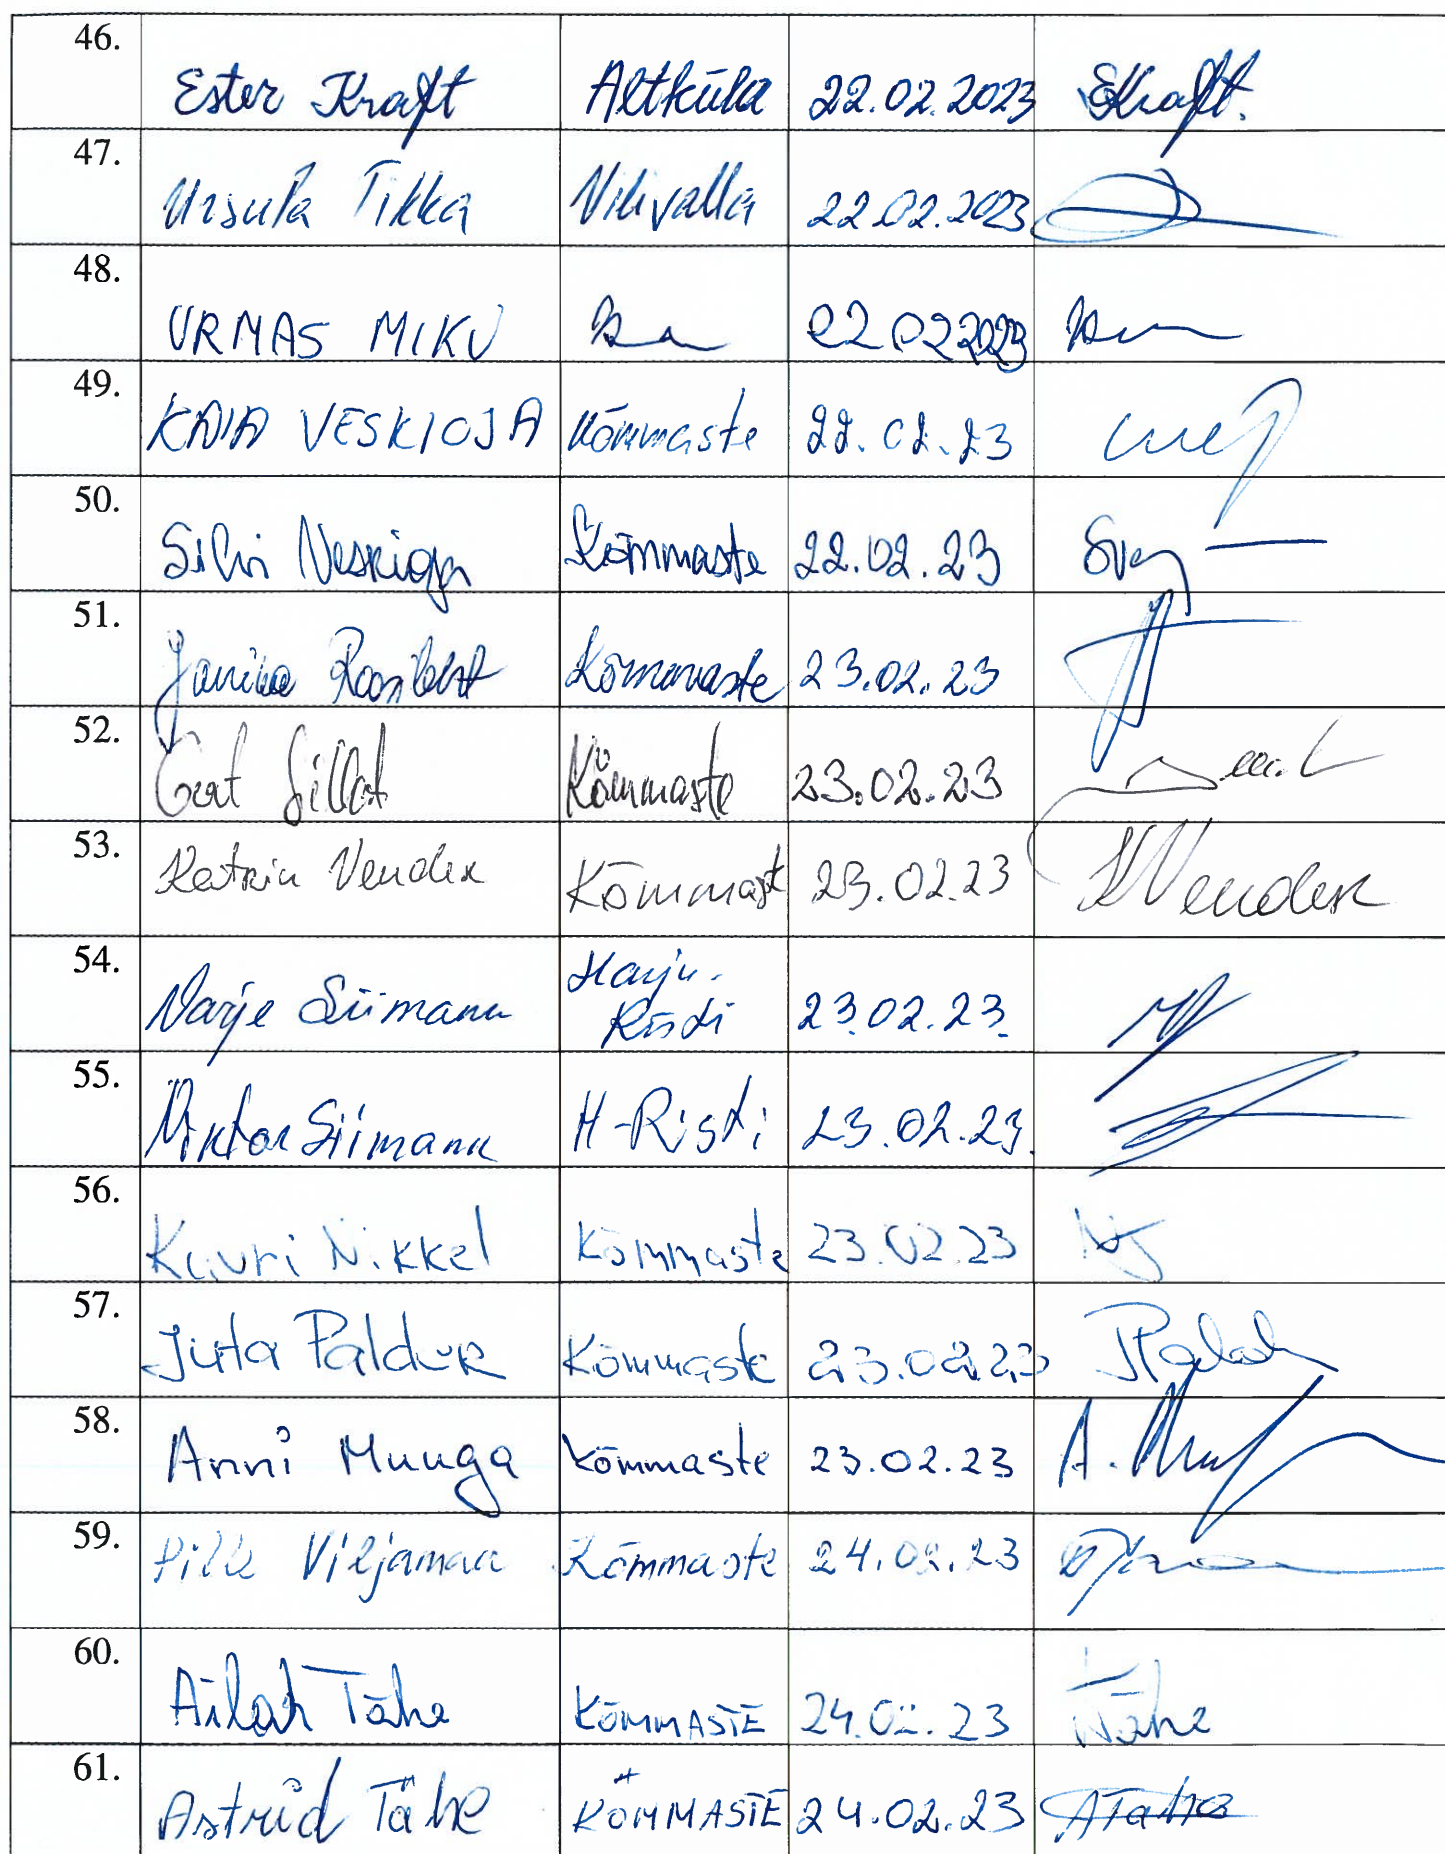 46. Ester Kraft Altküla 22.02.2023 EKraft.
47. Ursula Tikka Vilivalla 22.02.2023
48. URMAS MIKU 22.02.2023
49. KAIA VESKIOJA Kõmmaste 22.02.23
50. Silvi Veskioja Kõmmaste 22.02.23
51. Kõmmaste 23.02.23
52. Gert Sillat Kõmmaste 23.02.23
53. Katrin Vender Kõmmaste 23.02.23 KVender
54. Varje Siimann Harju-
Risti 23.02.23.
55. Viktor Siimann H-Risti 23.02.23.
56. Kauri Nikkel Kõmmaste 23.02.23
57. Juta Paldur Kõmmaste 23.02.23
58. Anni Muuga Kõmmaste 23.02.23
59. Pille Viljamaa Kõmmaste 24.02.23
60. Ailah Tähe KÕMMASTE 24.02.23 Tähe
61. Astrid Tähe KÕMMASTE 24.02.23 ATähe